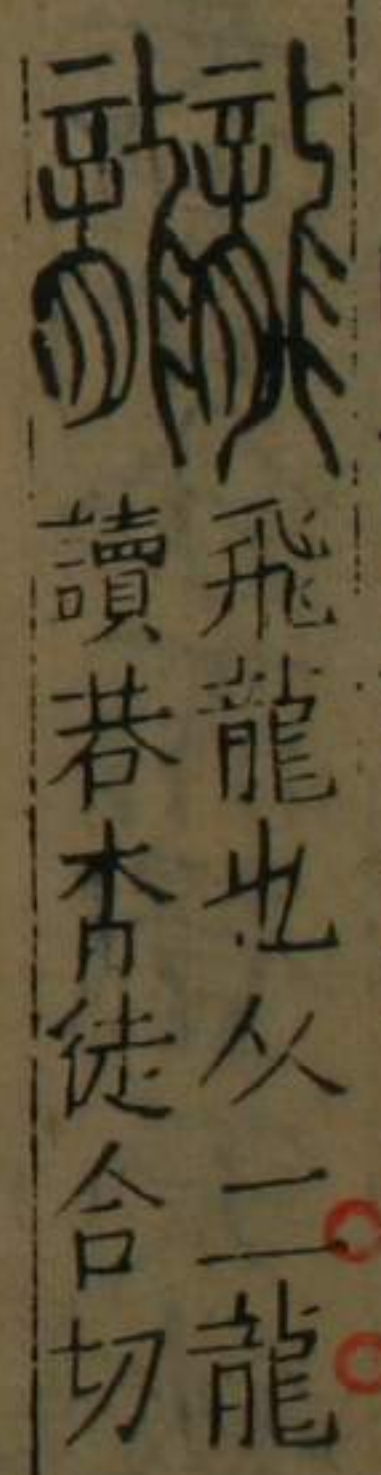 龖
飛龍也从二龍
讀若沓徒合切